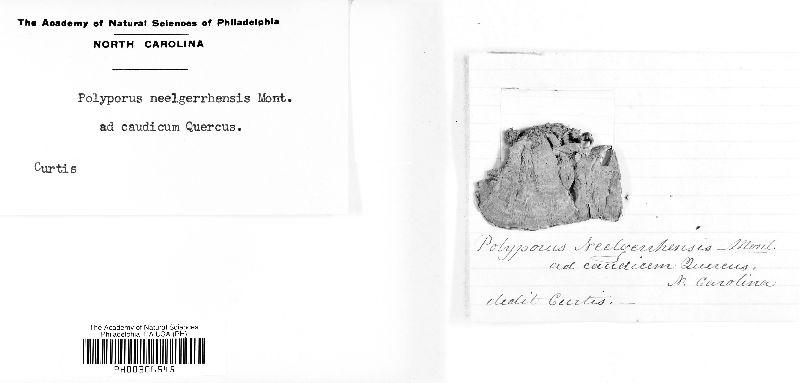 The Academy of Natural Sciences of Philadelphia
NORTH CAROLINA
Polyporus neelgerrhensis Mont.
ad caudicum Quercus.
Curtis
The Academy of Natural Sciences
Philadelphia, PA USA (PH)
Polyporus Neelgerrhensis — Mont.
ad caudicem Quercus.
N. Carolina
dedit Curtis. —